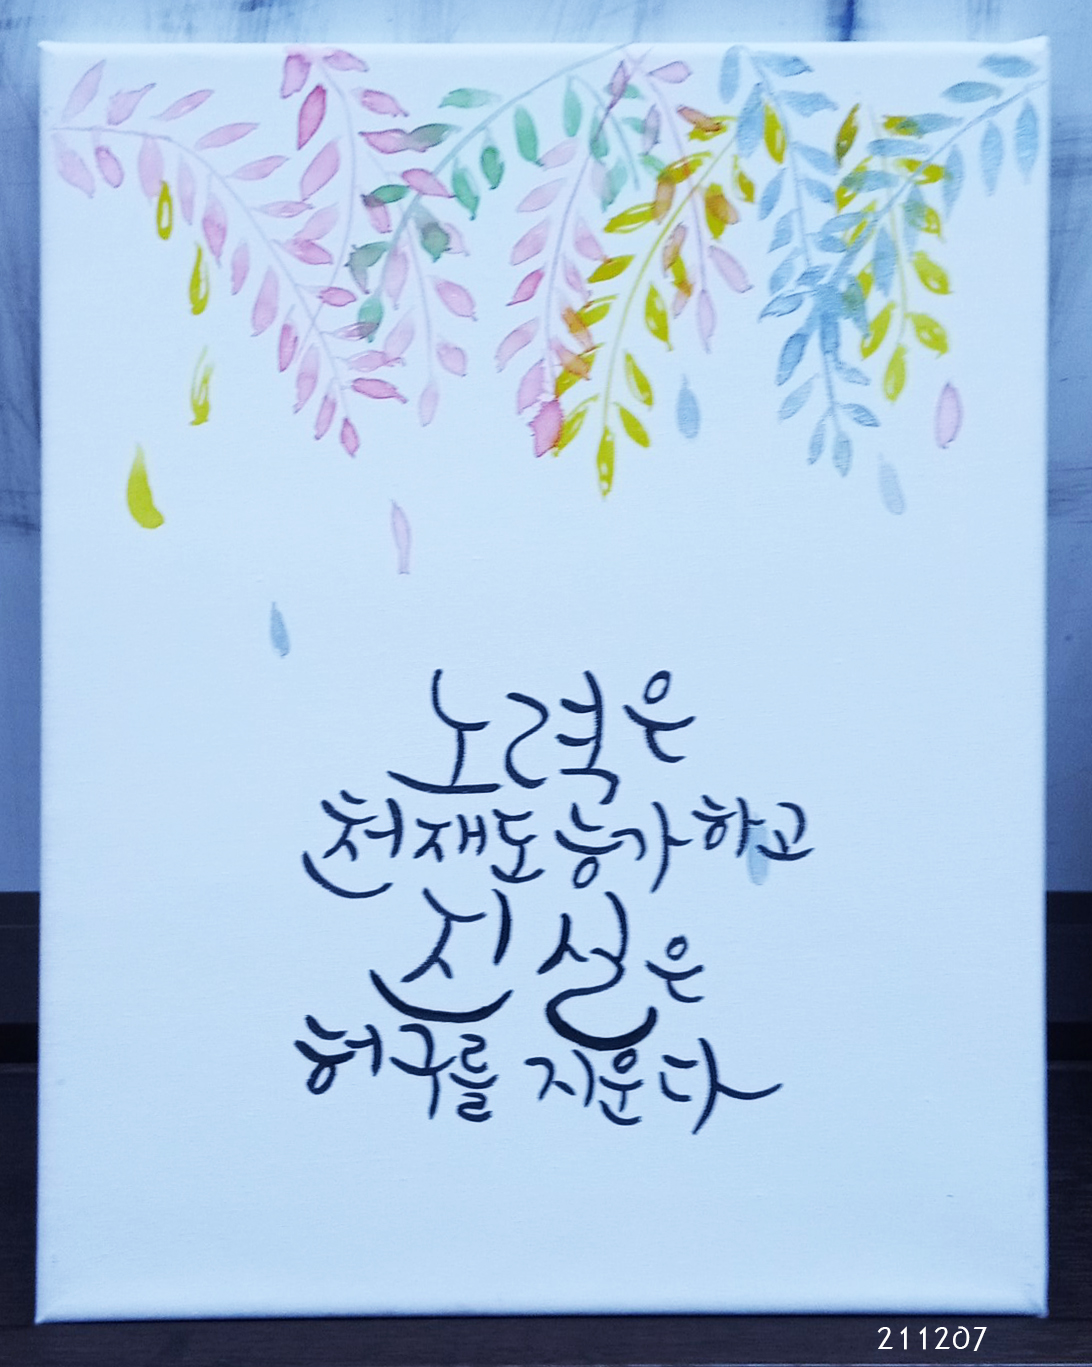 노력은
천재도 능가하고
진실은
허구를 지운다
211207